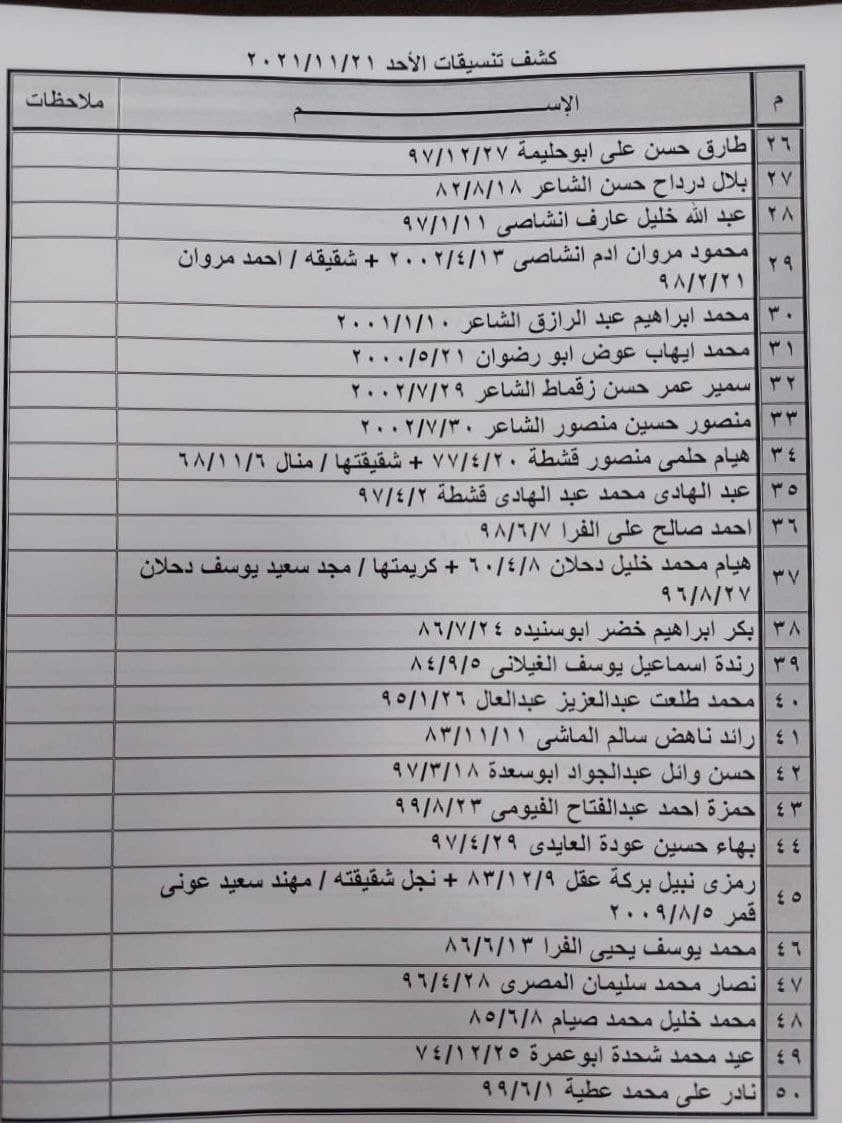 كشف تنسيقات الأحد ٢٠٢١/١١/٢١
م الإســـــــــــــم ملاحظات
٢٦ طارق حسن على ابوحليمة ٩٧/١٢/٢٧
٢٧ بلال درداح حسن الشاعر ٨٢/٨/١٨
٢٨ عبد الله خليل عارف انشاصى ٩٧/١/١١
٢٩ محمود مروان ادم انشاصى ٢٠٠٢/٤/١٣ + شقيقه / احمد مروان
٩٨/٢/٢١
٣٠ محمد ابراهيم عبد الرازق الشاعر ٢٠٠١/١/١٠
٣١ محمد ايهاب عوض ابو رضوان ٢٠٠٠/٥/٢١
٣٢ سمير عمر حسن زقماط الشاعر ٢٠٠٢/٧/٢٩
٣٣ منصور حسين منصور الشاعر ٢٠٠٢/٧/٣٠
٣٤ هيام حلمى منصور قشطة ٧٧/٤/٢٠ + شقيقتها / منال ٦٨/١١/٦
٣٥ عبد الهادى محمد عبد الهادى قشطة ٩٧/٤/٢
٣٦ احمد صالح على الفرا ٩٨/٦/٧
٣٧ هيام محمد خليل دحلان ٦٠/٤/٨ + كريمتها / مجد سعيد يوسف دحلان
٩٦/٨/٢٧
٣٨ بكر ابراهيم خضر ابوسنيده ٨٦/٧/٢٤
٣٩ رندة اسماعيل يوسف الغيلانى ٨٤/٩/٥
٤٠ محمد طلعت عبدالعزيز عبدالعال ٩٥/١/٢٦
٤١ رائد ناهض سالم الماشى ٨٣/١١/١١
٤٢ حسن وائل عبدالجواد ابوسعدة ٩٧/٣/١٨
٤٣ حمزة احمد عبدالفتاح الفيومى ٩٩/٨/٢٣
٤٤ بهاء حسين عودة العايدى ٩٧/٤/٢٩
٤٥ رمزى نبيل بركة عقل ٨٣/١٢/٩ + نجل شقيقته / مهند سعيد عونى
قمر ٢٠٠٩/٨/٥
٤٦ محمد يوسف يحيى الفرا ٨٦/٦/١٣
٤٧ نصار محمد سليمان المصرى ٩٦/٤/٢٨
٤٨ محمد خليل محمد صيام ٨٥/٦/٨
٤٩ عيد محمد شحدة ابوعمرة ٧٤/١٢/٢٥
٥٠ نادر على محمد عطية ٩٩/٦/١